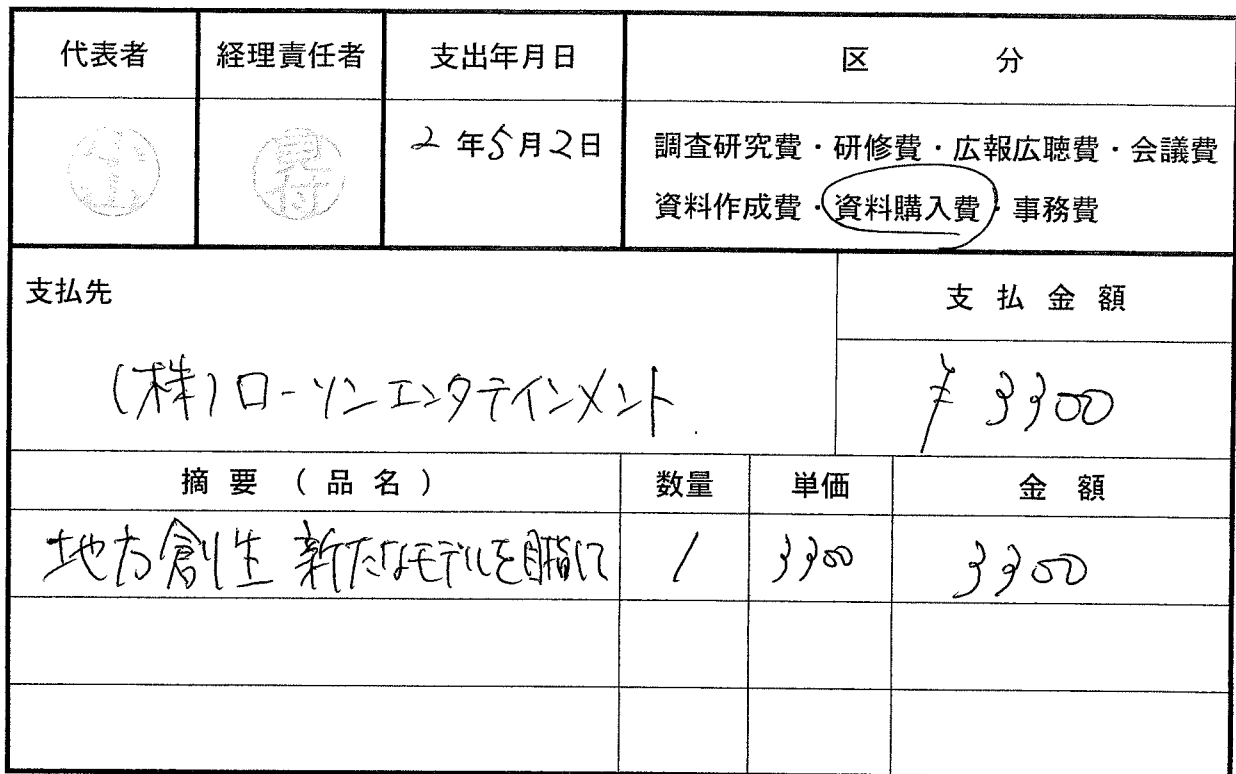 代表者 経理責任者 支出年月日 区 分
2 年5月2日
調査研究費・研修費・広報広聴費・会議費
資料作成費・資料購入費・事務費
支払先
支 払 金 額
(株)ローソンエンタテインメント
¥3300
摘 要 ( 品 名 ) 数量 単価 金 額
地方創生 新たなモデルを目指して 1 3300 3300